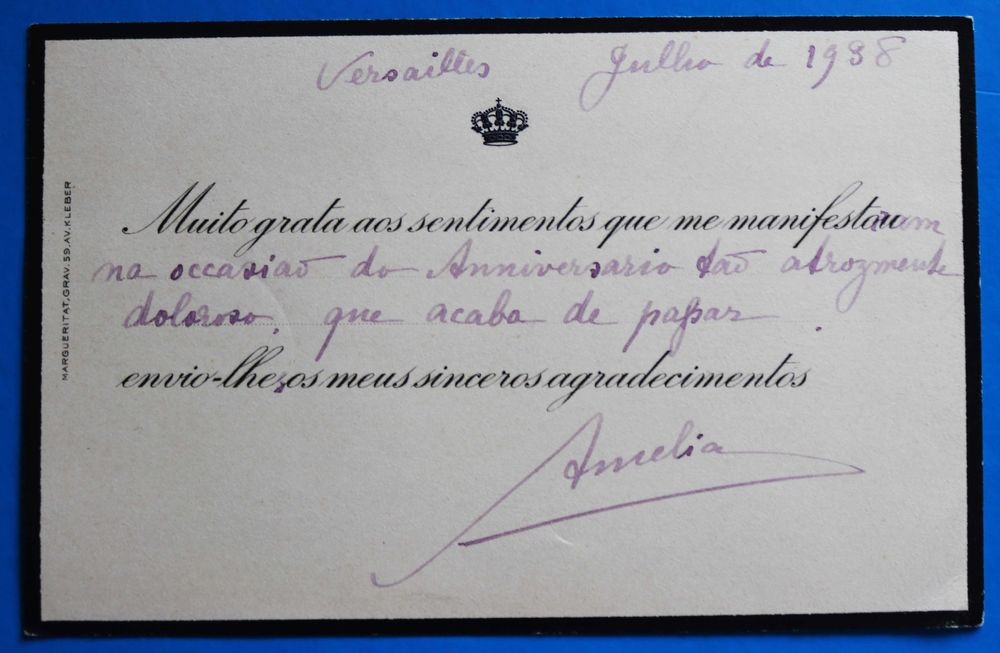 Versailles Julho de 1938
Muito grata aos sentimentos que me manifestaram
na occasiaõ do Anniversario taõ atrozmente
doloroso, que acaba de passar.
envio-lhes os meus sinceros agradecimentos
Amelia
MARGUERITAT, GRAV. 59, AV. KLEBER